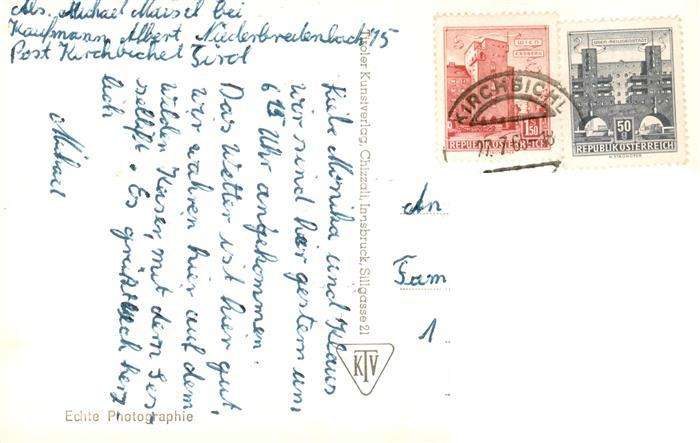 Abs. Michael Maisel bei
Kaufmann Albert Niederbreitenbach 75
Post Kirchbichel Tirol
Liebe Monika und Klaus
wir sind hier gestern um
6 15 Uhr angekommen
Das Wetter ist hier gut,
wir wahren hier auf dem
wilden Kaiser, mit dem Ses
sellift. Es grüßt euch herz,
lich
Michael
Tiroler Kunstverlag, Chizzali, Innsbruck, Sillgasse 21
KTV
Echte Photographie
WIEN
ERDBERG
1.50
REPUBLIK ÖSTERREICH
WIEN-HEILIGENSTADT
50
g
REPUBLIK ÖSTERREICH
KIRCHBICHL
An
Fam
1